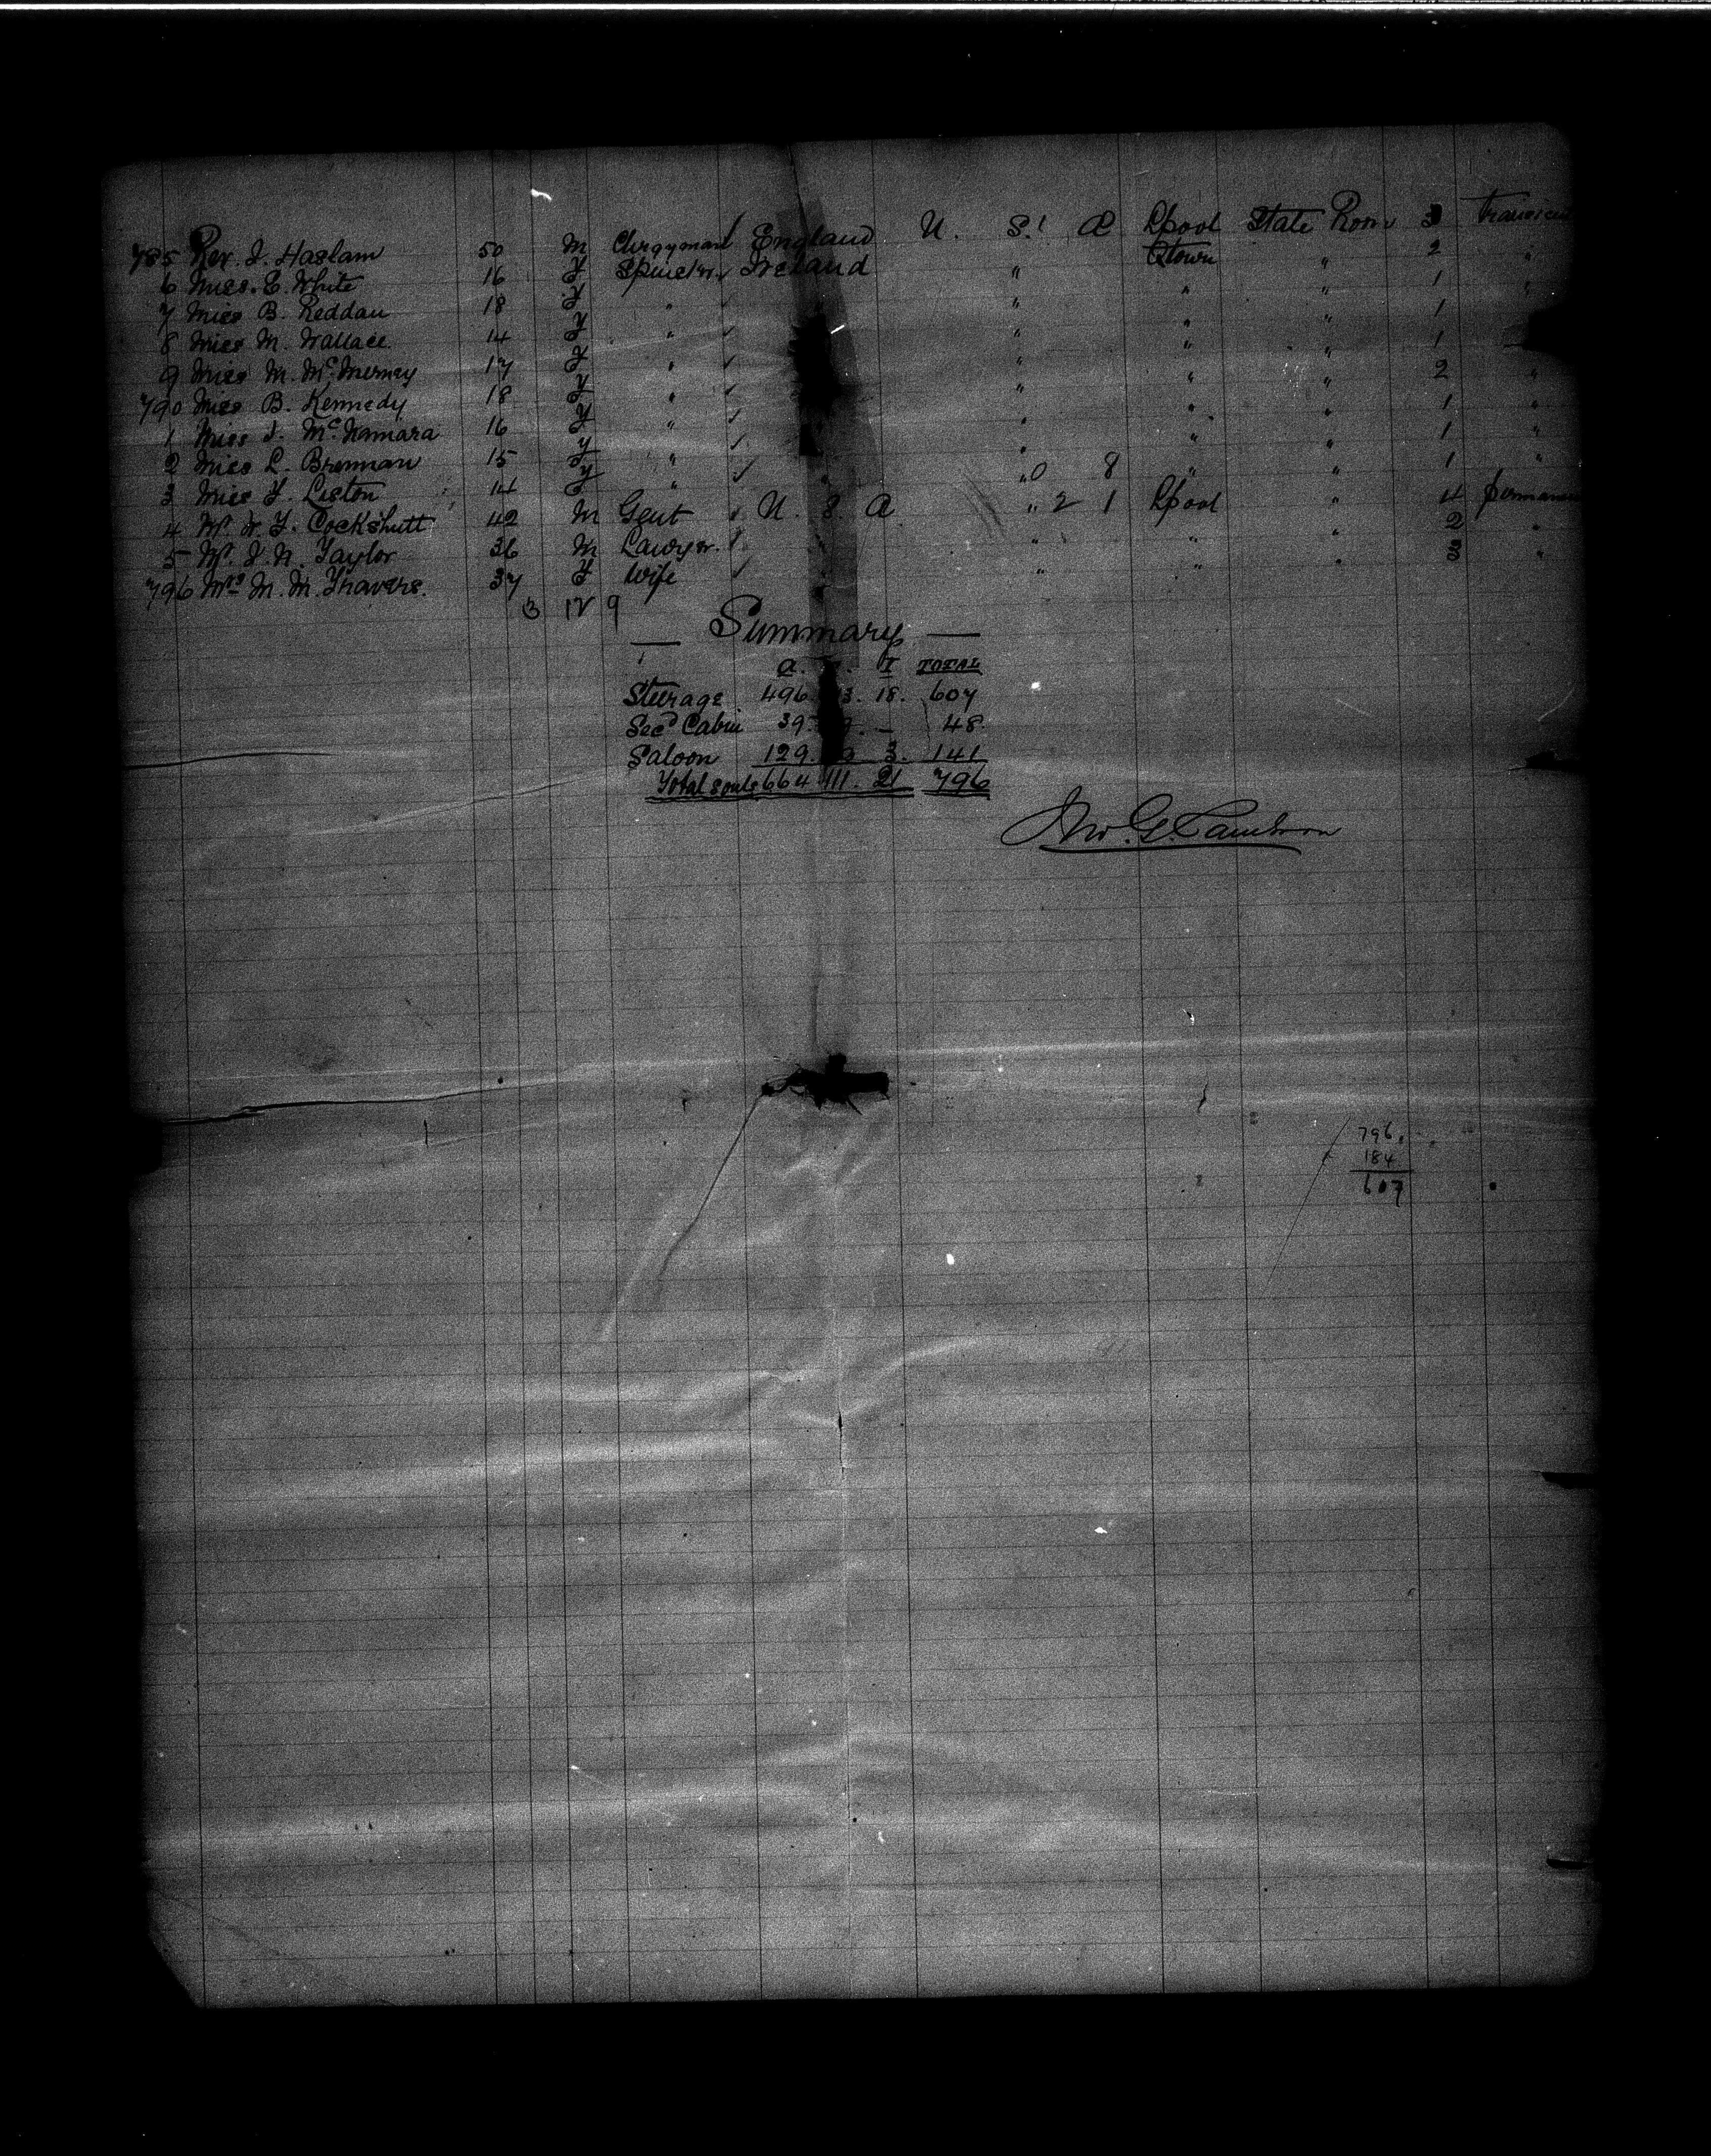 785 Rev. J. Haslam 50 M Clergyman England U. S. A Lpool State Room 3 transient
6 Miss. E. White 16 F Spinster Ireland " Qtown " 2 "
7 Miss B. Reddan 18 F " " " " 1 "
8 Miss M. Wallace 14 F " " " " 1
9 Miss M. McInerney 17 F " " " " 1
790 Miss B. Kennedy 18 F " " " " 2 "
1 Miss J. McNamara 16 F " " " " 1 "
2 Miss L. Brennan 15 F " " " " 1 "
3 Miss F. Liston 14 F " " 0 8 " " 1 "
4 Mr W. F. Cockshutt 42 M Gent U. S A " 2 1 Lpool " 4 permanent
5 Mr. J. N. Taylor 36 M Lawyer " " " " 2 "
796 Mrs M. M. Travers. 37 F Wife " " " " 3 "
3 12 9
— Summary —
A. I TOTAL
Steerage 496 3. 18. 607
Secd Cabin 39. 9. — 48.
Saloon 129. 3. 141
Total souls 664 111. 21 796
Jno. G. Cameron
796
184
607